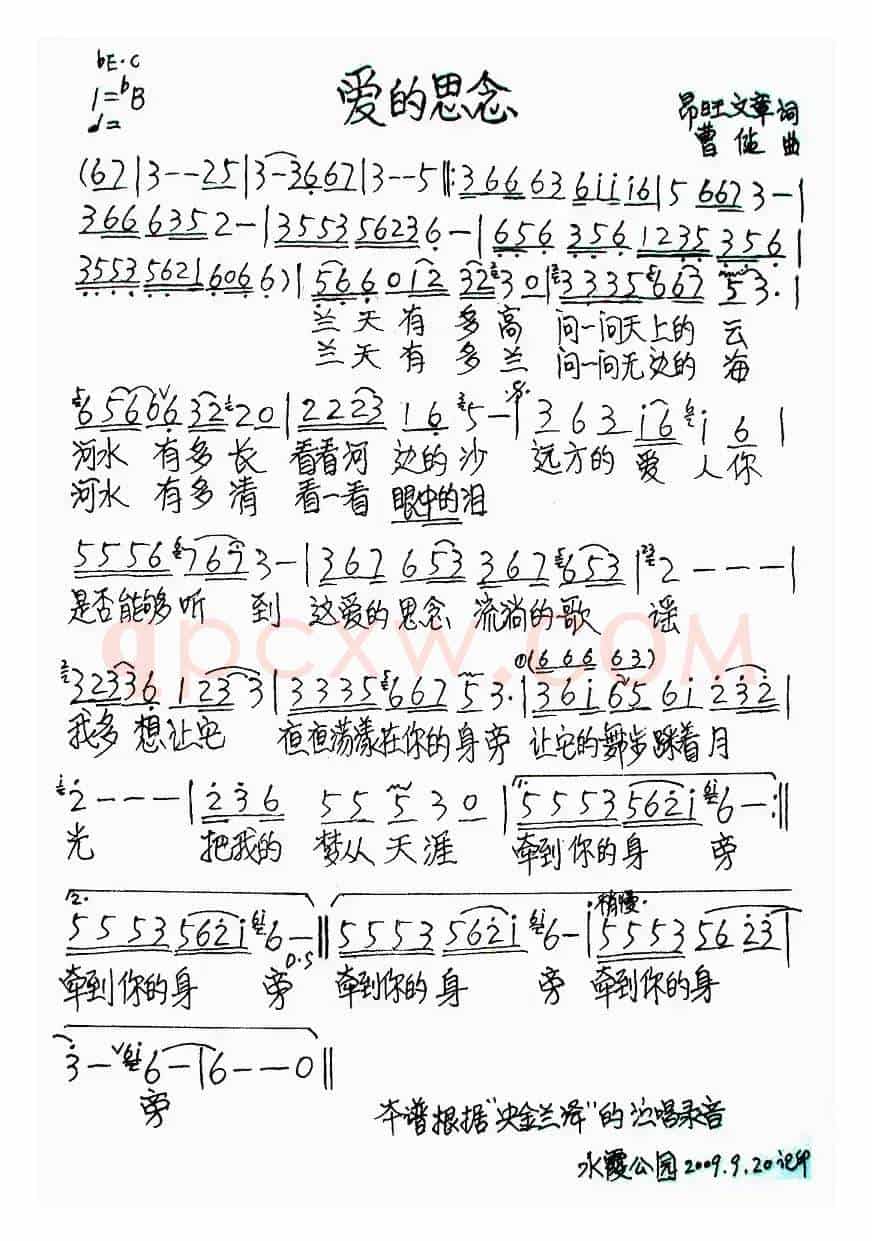 bE·C
1=bB
爱的思念
昂旺文章词
曹 曲
(67|3--25|3-3667|3--5‖:366 63 6iii6|5 667 3-|
366 6352-|3553 56236-|656 356 1235 356|
3553 5621 6066)|566012 32 30|3335 667 53·|
兰天有多高 问一问天上的云
兰天有多兰 问一问无边的海
65666 32 20|2223 16 5-|363 i6 i6|
河水有多长 看看河边的沙 远方的爱人你
河水有多清 看一看眼中的泪
5556 767 3-|367 653 367 653|2---|
是否能够听到 这爱的思念 流淌的歌谣
①(666 63)
32336 1233|3335 667 53·|36i 665 6i 232|
我多想让它 夜夜荡漾在你的身旁 让它的舞步踩着月
2---|236 55 530|1. 5553 562i 6-:‖
光 把我的梦从天涯 牵到你的身旁
稍慢·
2. 5553 562i 6-‖5553 562i 6-|5553 56 23|
D.S
牵到你的身旁 牵到你的身旁 牵到你的身
3-6-|6--0‖
旁
本谱根据"央金兰泽"的演唱录音
水霞公园2009.9.20记
qpcxw.com